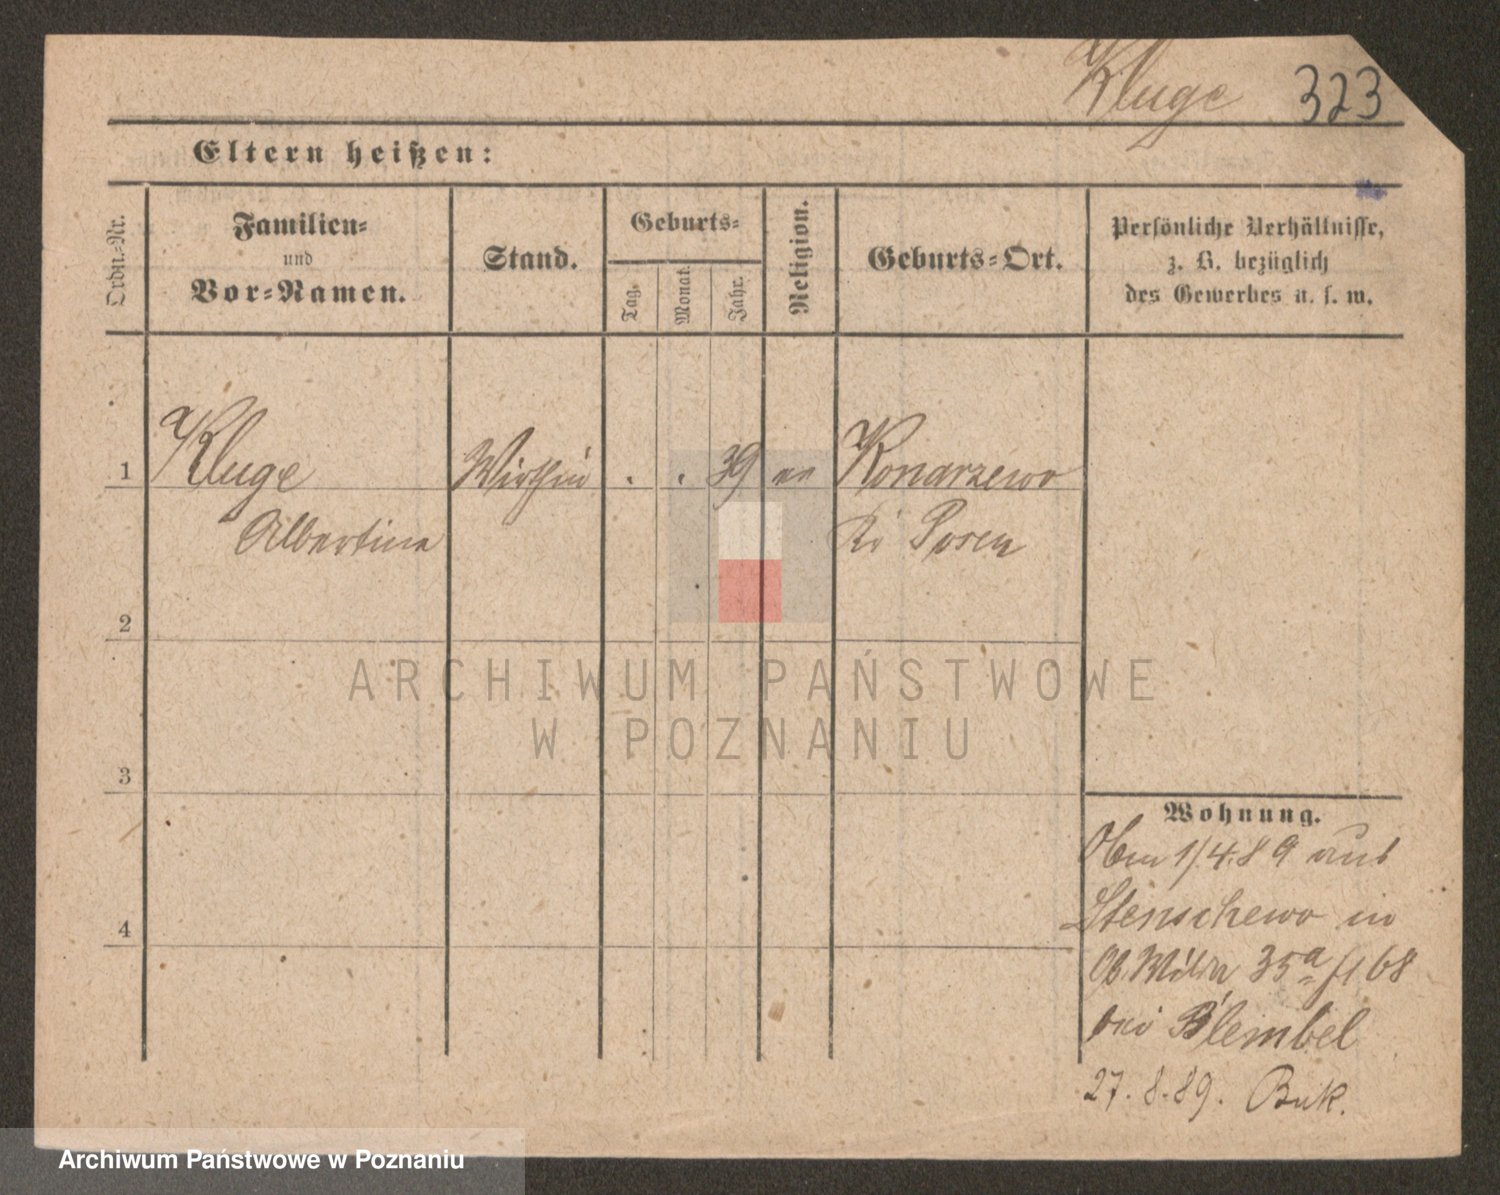 Kluge 323
Eltern heißen:
Ordn.-Nr.
Familien-
und
Vor-Namen.
Stand.
Geburts-
Tag.
Monat.
Jahr.
Religion.
Geburts-Ort.
Persönliche Verhältnisse,
z. B. bezüglich
des Gewerbes u. s. w.
1 Kluge Wirthin . . 39 Konarzewo
Albertine Posen
2
3
4
Wohnung.
1/4.89 aus
Stenschewo in
Ob. Wilda 35a 68
bei Blembel
27.8.89. Buk.
ARCHIWUM PAŃSTWOWE
W POZNANIU
Archiwum Państwowe w Poznaniu